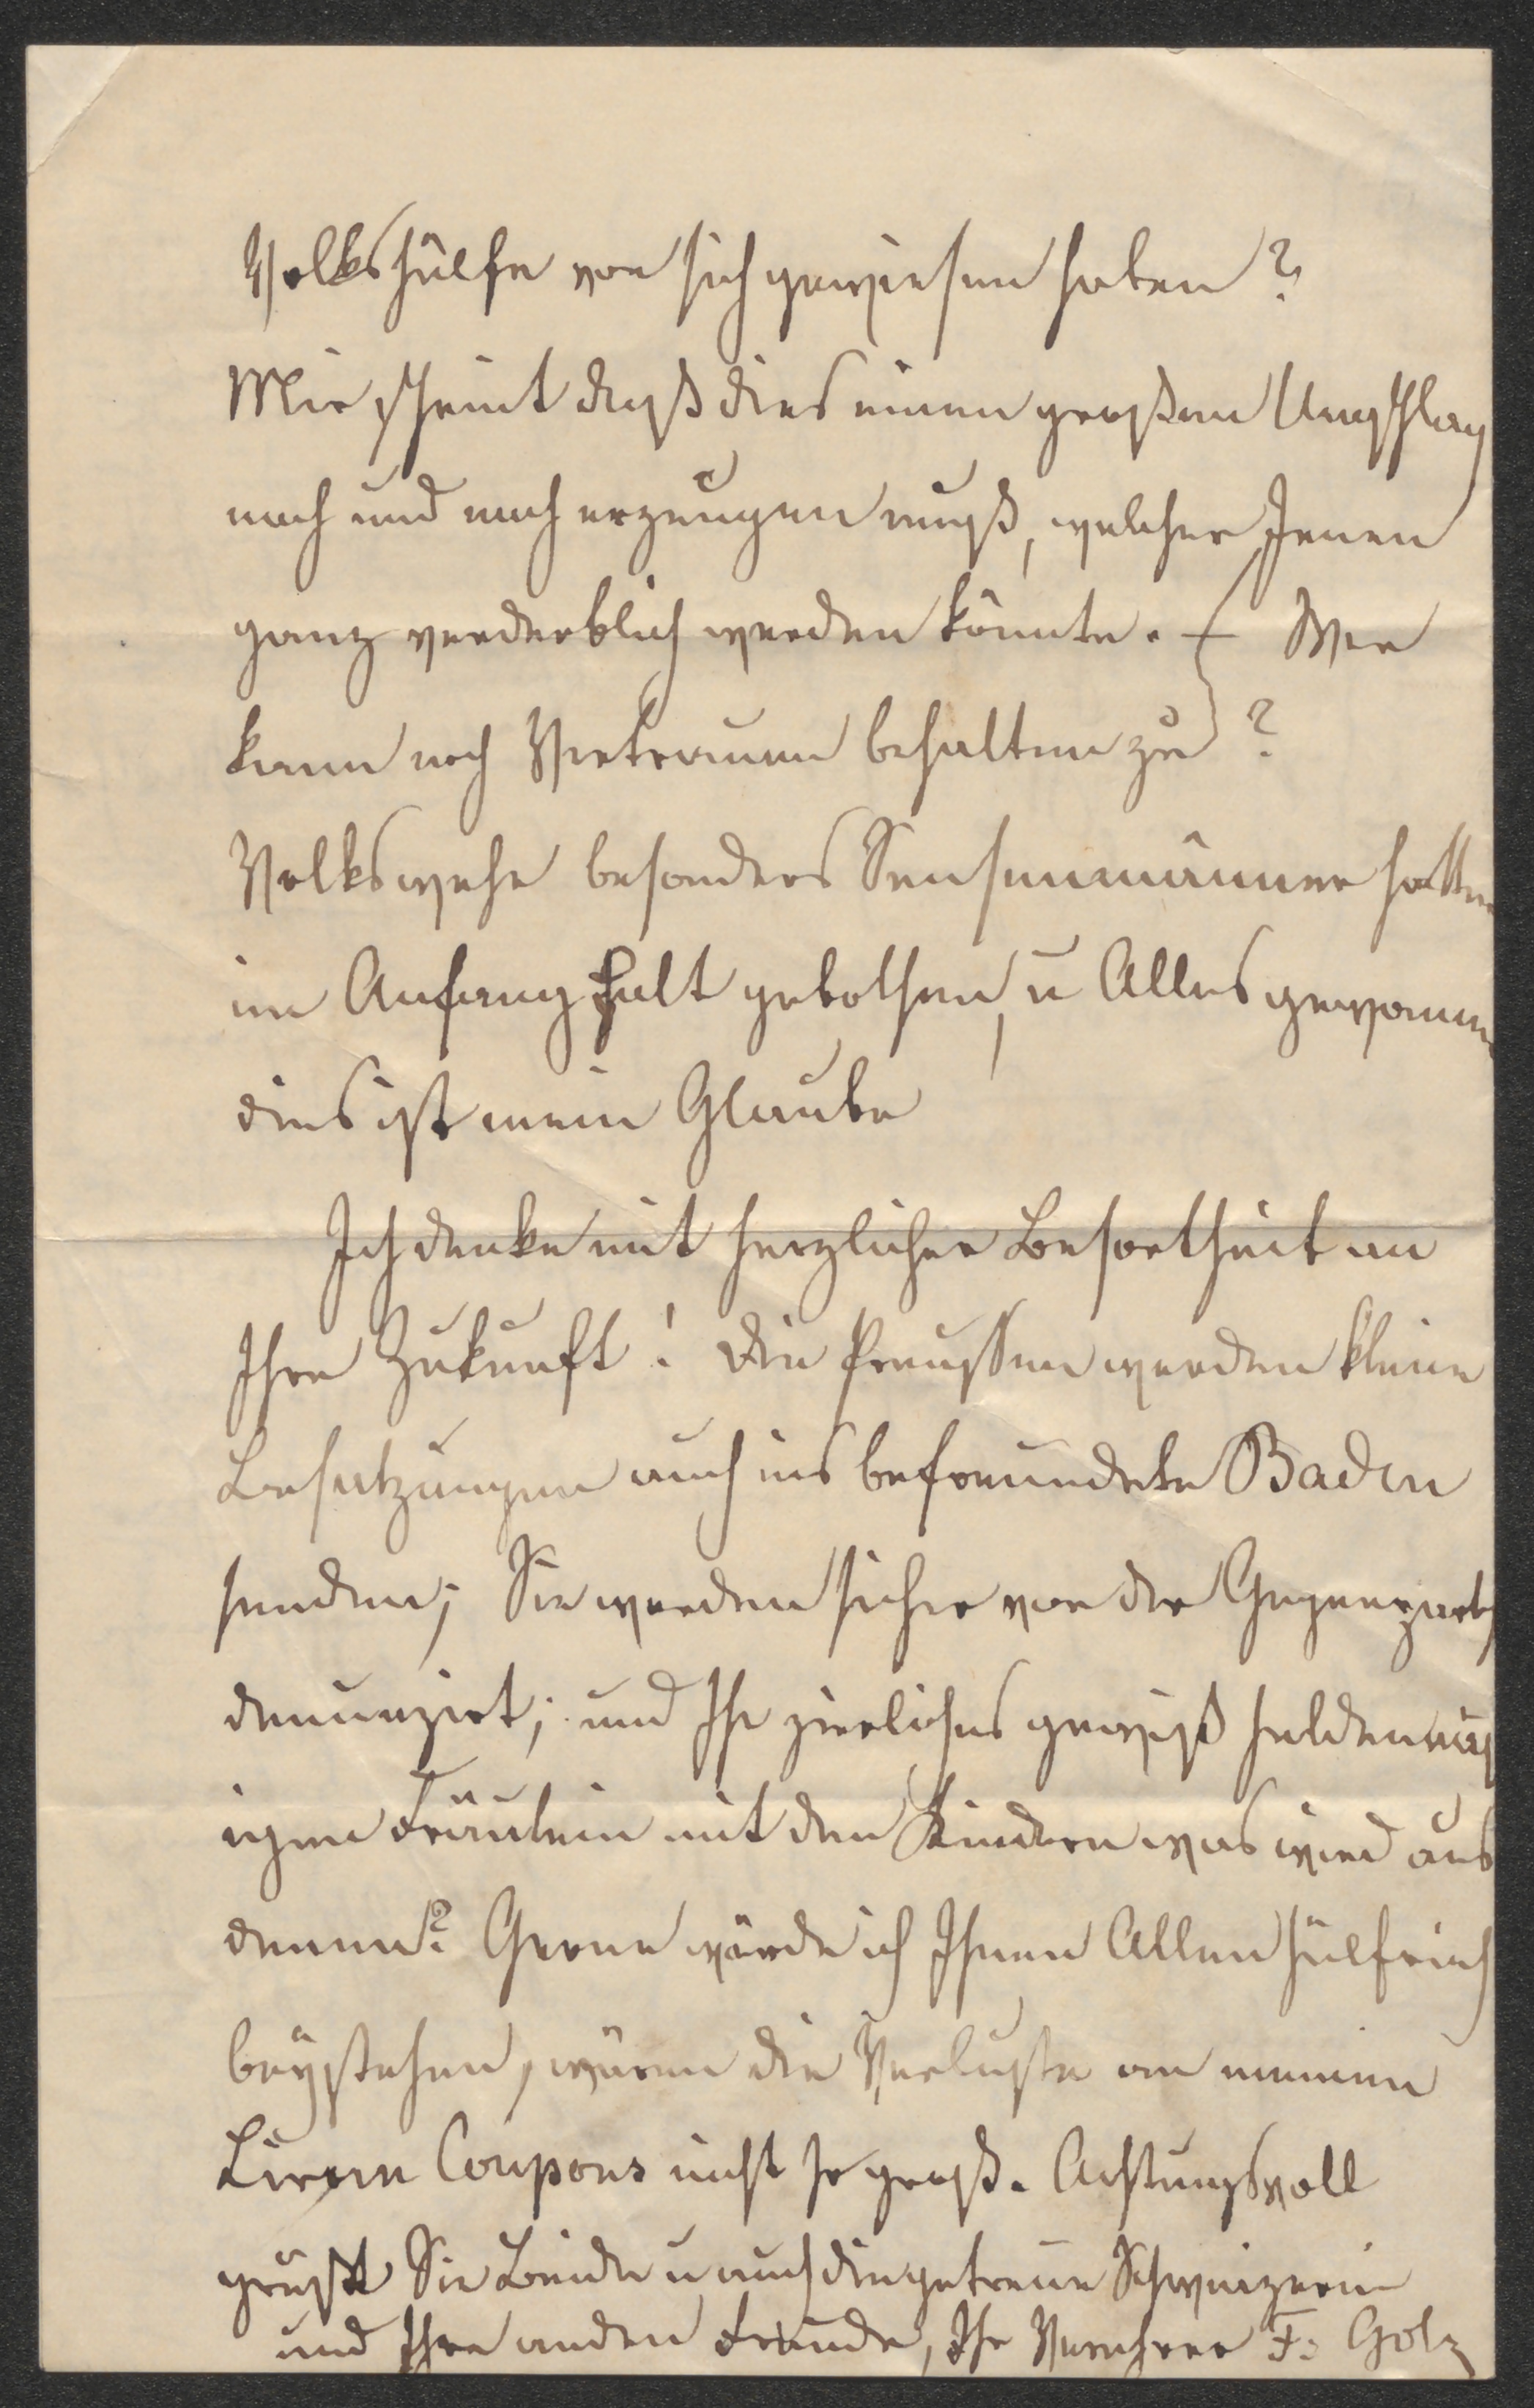 Volkshülfe von sich gewiesen haben?
Mir scheint daß dies einen großen Umschlag
nach und nach erzeugen muß, welcher Jenen
ganz verderblich werden könnte. – Wer
kann noch Vertrauen behalten zu ?
Volkswehr besonders Sensenmänner hatten
im Anfang Halt gebothen, u Alles gewonnen
dies ist mein Glaube
Ich denke mit herzlicher Besortheit an
Ihre Zukunft! Die Preussen werden kleine
Besatzungen auch ins befreundete Baden
senden; Sie werden sicher von der Gegenparthy
denunzirt; und Ihr zierliches gewiß heldenmüth
igen Fräulein mit den Kindern was wird aus
denen? Gerne würde ich Ihnen Allen hülfreich
beystehen, wären die Verluste an meinen
Coupons nicht so groß. Achtungsvoll
grüßt Sie Beide u auch die getreue Schweizerin
und Ihre andern Freunde, Ihr Verehrer F. Golz